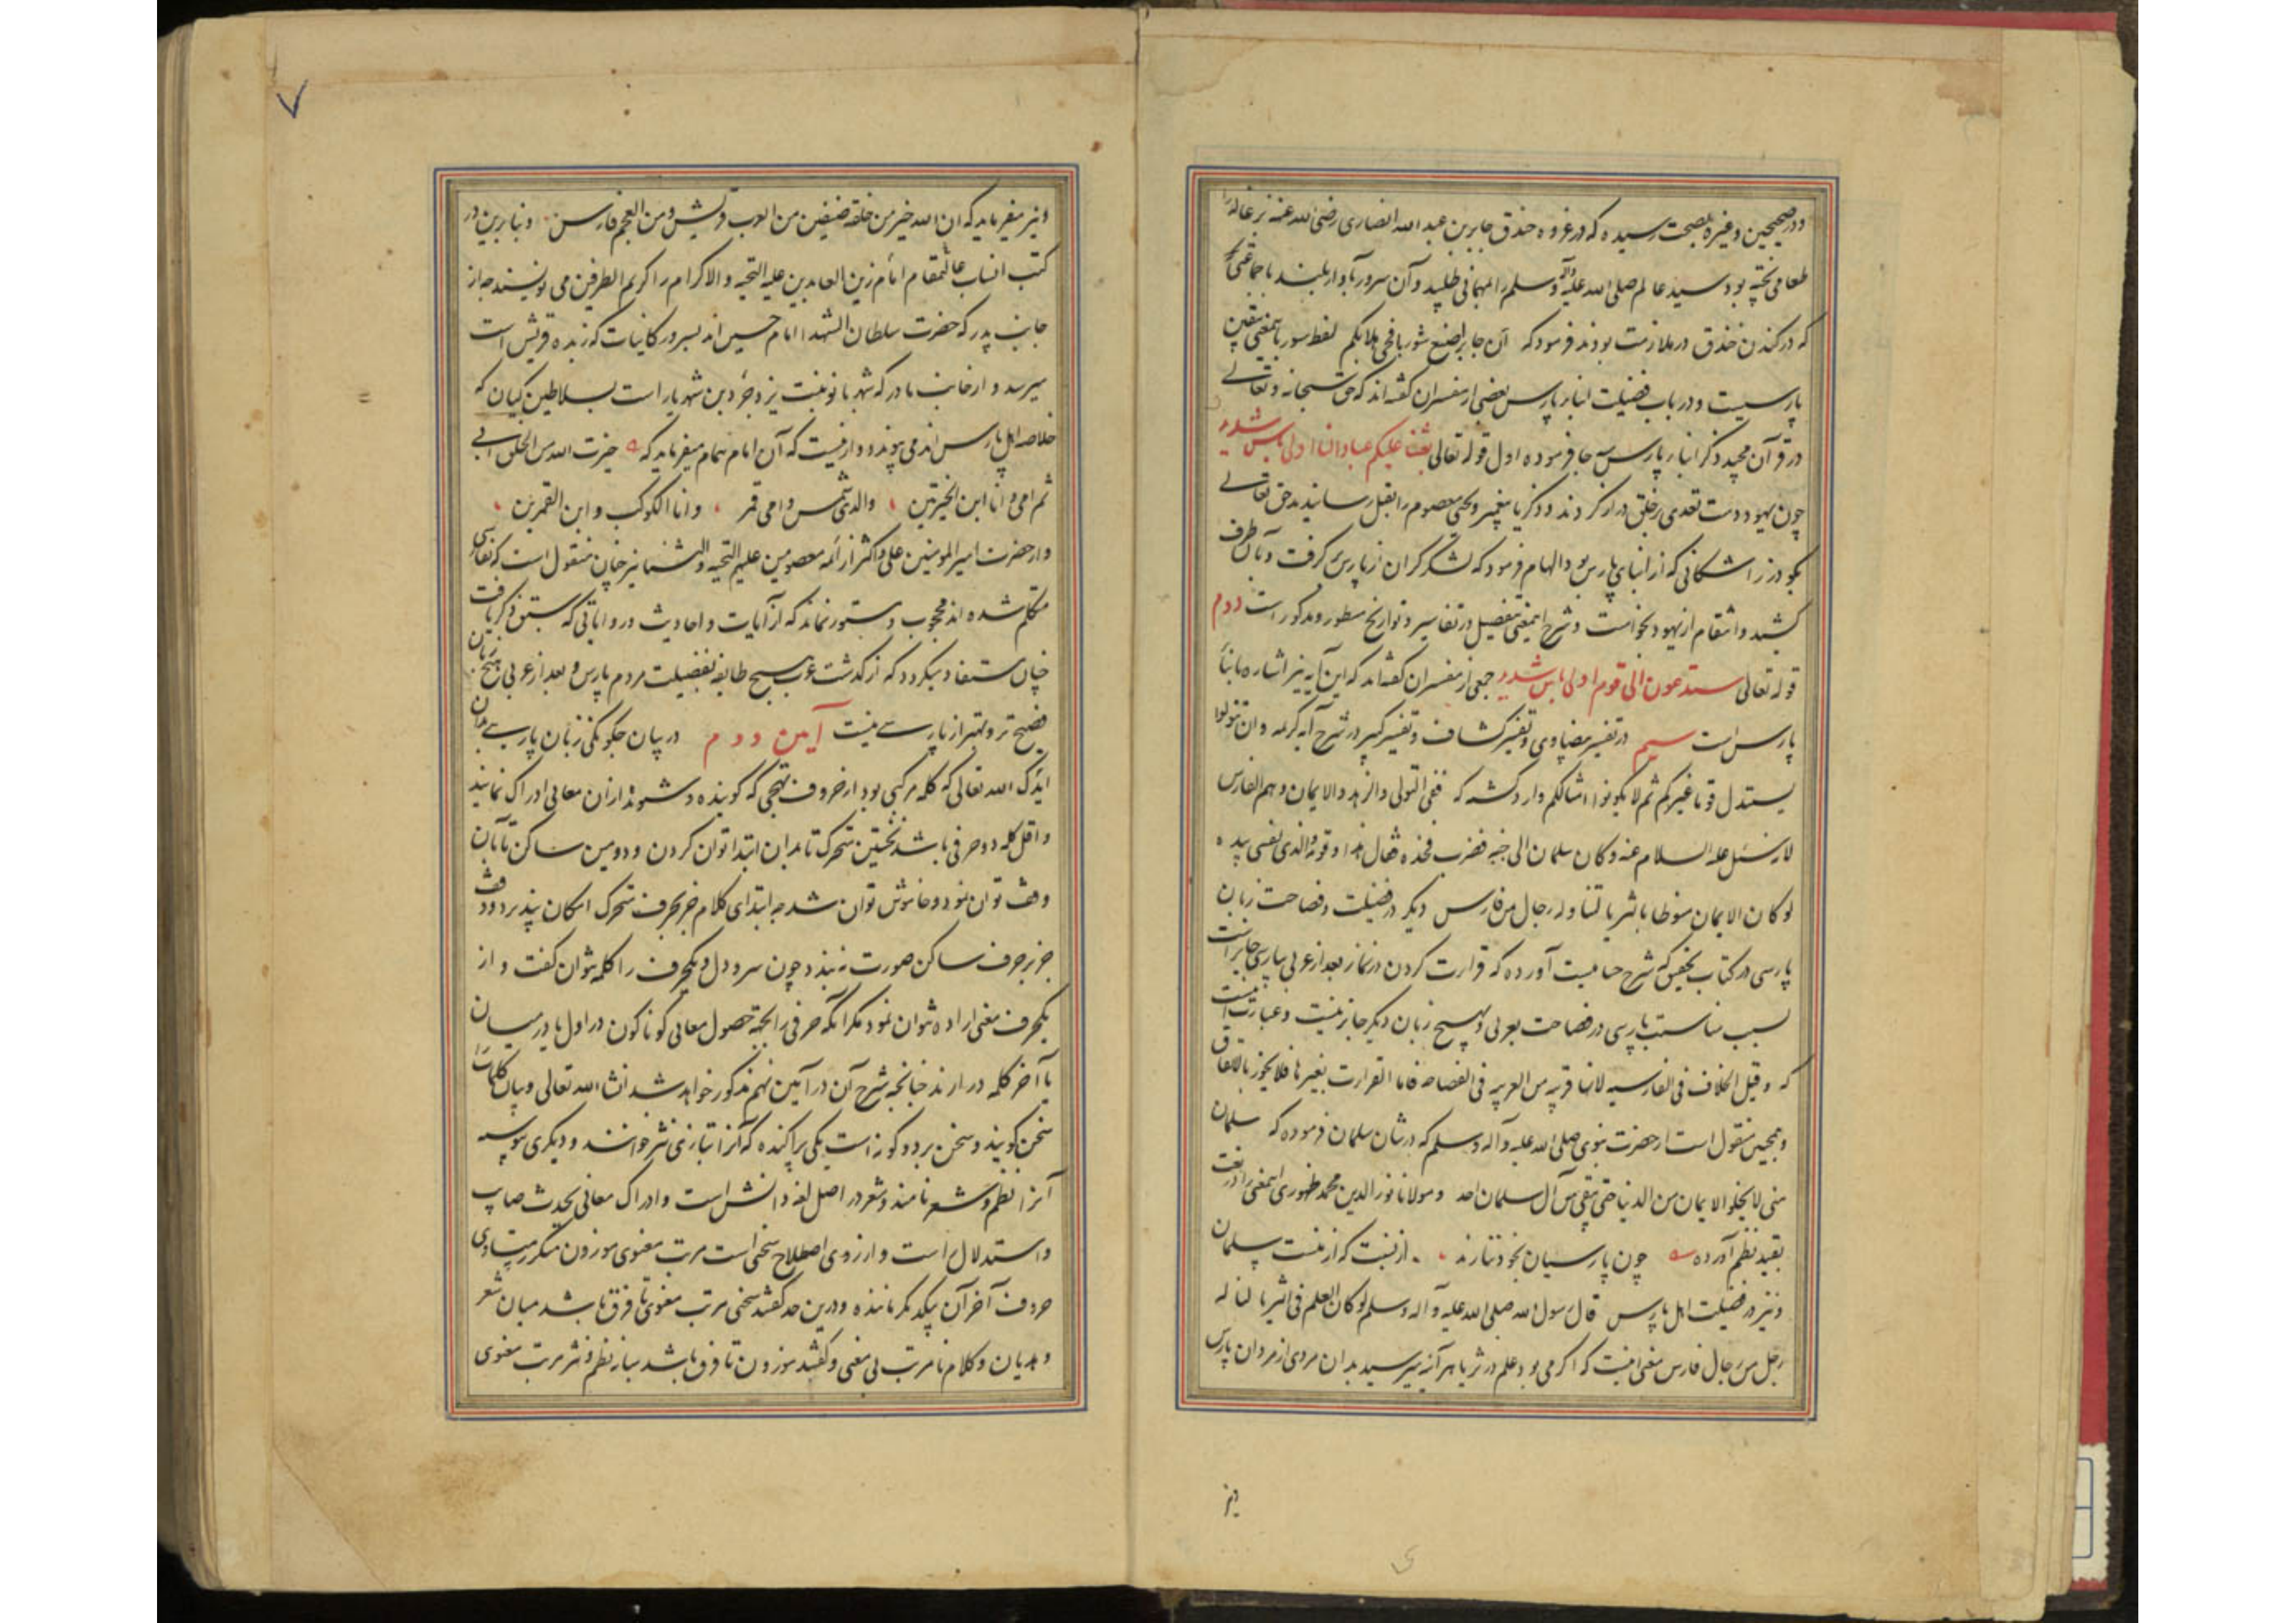 و در صحیحین و غیره بصحت رسیده که در غزوه خندق جابر بن عبد الله انصاری رضی الله عنه بزغاله را
طعامی پخته بود سید عالم صلی الله علیه و آله وسلم را بمهمانی طلبید و آن سرور بآواز بلند با جماعتی
که در کندن خندق در ملازمت بودند فرمود که ان جابرا صنع شوربا فحی هلا بکم لفظ سور باتمعنی بیقین
پارسیست و در باب فضیلت انبار پارس بعضی از مفسران گفته اند که حق سبحانه و تعالی
در قرآن مجید ذکر انبار پارس سه جا فرموده اول قوله تعالی بعثنا علیکم عبادا لنا اولی باس شدید
چون یهود دست تعدی بر خلق دراز کردند و زکریا پیغمبر و یحیی معصوم را بقتل رسانیدند حق تعالی
بگودرز اشکانی که از ابنای پارس بود الهام فرمود که لشکر گران از پارس گرفت و بآن طرف
کشید و انتقام از یهود بخواست و شرح اینمعنی بتفصیل در تفاسیر و تواریخ مسطور و مذکور است دوم
قوله تعالی ستدعون الی قوم اولی باس شدید جمعی از مفسران گفته اند که این آیه نیز اشاره بابنا
پارس است سیم در تفسیر بیضاوی و تفسیر کشاف و تفسیر کبیر در شرح آیه کریمه و ان تتولوا
یستبدل قوما غیرکم ثم لا یکونوا امثالکم وارد گشته که فی التولی والزهد والایمان و هم الفارس
لانه سئل علیه السلام عنه و کان سلمان الی جنبه فضرب فخذه فقال هذا و قومه والذی نفسی بیده
لو کان الایمان منوطا بالثریا لتناوله رجال من فارس دیگر در فضیلت و فصاحت زبان
پارسی در کتاب تحقیق که شرح حسامیست آورده که قرارت کردن در نماز بعد از عربی بپارسی جایز است
بسبب مناسبت پارسی در فصاحت بعربی و بهیچ زبان دیگر جایز نیست و عبارت اینست
که و قیل الخلاف فی الفارسیه لانها قریبه من العربیه فی الفصاحه فاما القرارت بغیرها فلا یجوز بالاتفاق
و همچنین منقول است از حضرت نبوی صلی الله علیه و آله وسلم که در شان سلمان فرموده که سلمان
منی لا یخلو الایمان من الدنیا حتی یبقی من آل سلمان احد و مولانا نور الدین محمد ظهوری اینمعنی را در نعت
بقید نظم آورده چون پارسیان بخود ننازند از نسبت که از منست سلمان
و نیز در فضیلت اهل پارس قال رسول الله صلی الله علیه و آله وسلم لو کان العلم فی الثریا لناله
رجل من رجال فارس معنی اینست که اگر می بود علم در ثریا هر آینه میرسید بدان مردی از مردان پارس
ونیز
و نیز میفرماید که ان الله خیر من خلقه صنفین من العرب قریش و من العجم فارس و بنابرین در
کتب انساب عالیمقام امام زین العابدین علیه التحیه و الاکرام را کریم الطرفین می نویسند چه از
جانب پدر که حضرت سلطان الشهدا امام حسین اند بسرور کاینات که زبده قریش است
میرسد و از جانب مادر که شهربانو بنت یزدجرد بن شهریار است بسلاطین کیان که
خلاصه اهل پارس اند می پیوندد و ازینست که آن امام همام میفرماید که خیرت الله من الخلق ابی
ثم امی و انا ابن الخیرتین والدی شمس و امی قمر و انا الکوکب و ابن القمرین
و از حضرت امیر المومنین علی و اکثر از ائمه معصومین علیهم التحیه و الثنا نیز چنان منقول است که بفارسی
متکلم شده اند محجوب و مستور نماند که از آیات و احادیث و روایاتی که سبق ذکر یافت
چنان مستفاد میگردد که از گذشت عرب هیچ طایفه بفضیلت مردم پارس و بعد از عربی هیچ زبان
فصیح تر و بهتر از پارسی نیست آیین دوم در بیان چگونگی زبان پارسی بدان
ایدک الله تعالی که کلمه مرکبی بود از حروف تهجی که گوینده و شنونده از آن معانی ادراک نمایند
و اقل کلمه دو حرفی باشد نخستین متحرک تا بدان ابتدا توان کردن و دومین ساکن تا بآن
وقف توان نمود و خاموش توان شد چه ابتدای کلام جز بحرف متحرک امکان پذیر نبود و وقف
جز بر حرف ساکن صورت نبندد چون سر و دل و یکحرف را کلمه نتوان گفت و از
یکحرف معنی اراده نتوان نمود مگر آنکه حرفی را بجهة حصول معانی گوناگون در اول یا در میان
یا آخر کلمه در ارند چنانچه شرح آن در آیین نهم مذکور خواهد شد انشا الله تعالی و بیان کلمات را
سخن گویند و سخن بر دو گونه است یکی پراکنده که آنرا بتازی نثر خوانند و دیگری پیوسته
آنرا نظم و شعر نامند و شعر در اصل لغه دانش است و ادراک معانی بحدث صایب
و استدلال راست و از روی اصطلاح سخنی است مرتب معنوی موزون متکرر متساوی
حروف آخر آن بیکدیگر ماننده و درین حد گفتند سخنی مرتب معنوی تا فرق باشد میان شعر
و هذیان و کلام نامرتب بی معنی و گفتند موزون تا فرق باشد میان نظم و نثر مرتب معنوی